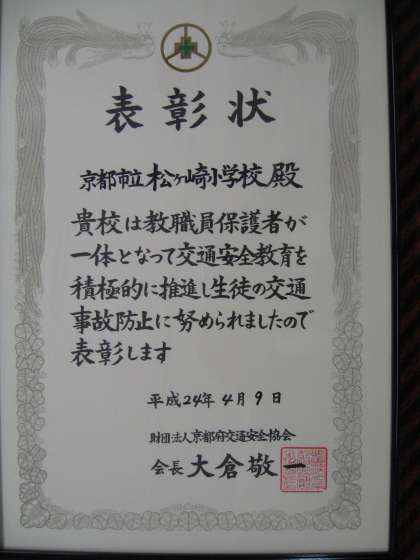 表彰状
京都市立松ヶ崎小学校殿
貴校は教職員保護者が
一体となって交通安全教育を
積極的に推進し生徒の交通
事故防止に努められましたので
表彰します
平成24年4月9日
財団法人京都府交通安全協会
会長 大倉敬一